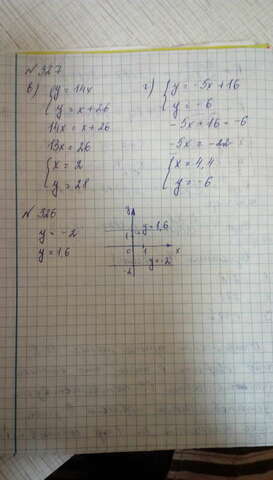 № 327
в) { y = 14x
y = x + 26
14x = x + 26
13x = 26
{ x = 2
y = 28
г) { y = -5x + 16
y = -6
-5x + 16 = -6
-5x = -22
{ x = 4,4
y = -6
№ 326
y = -2
y = 1,6
y
y = 1,6
1
0 1 x
y = -2
-2